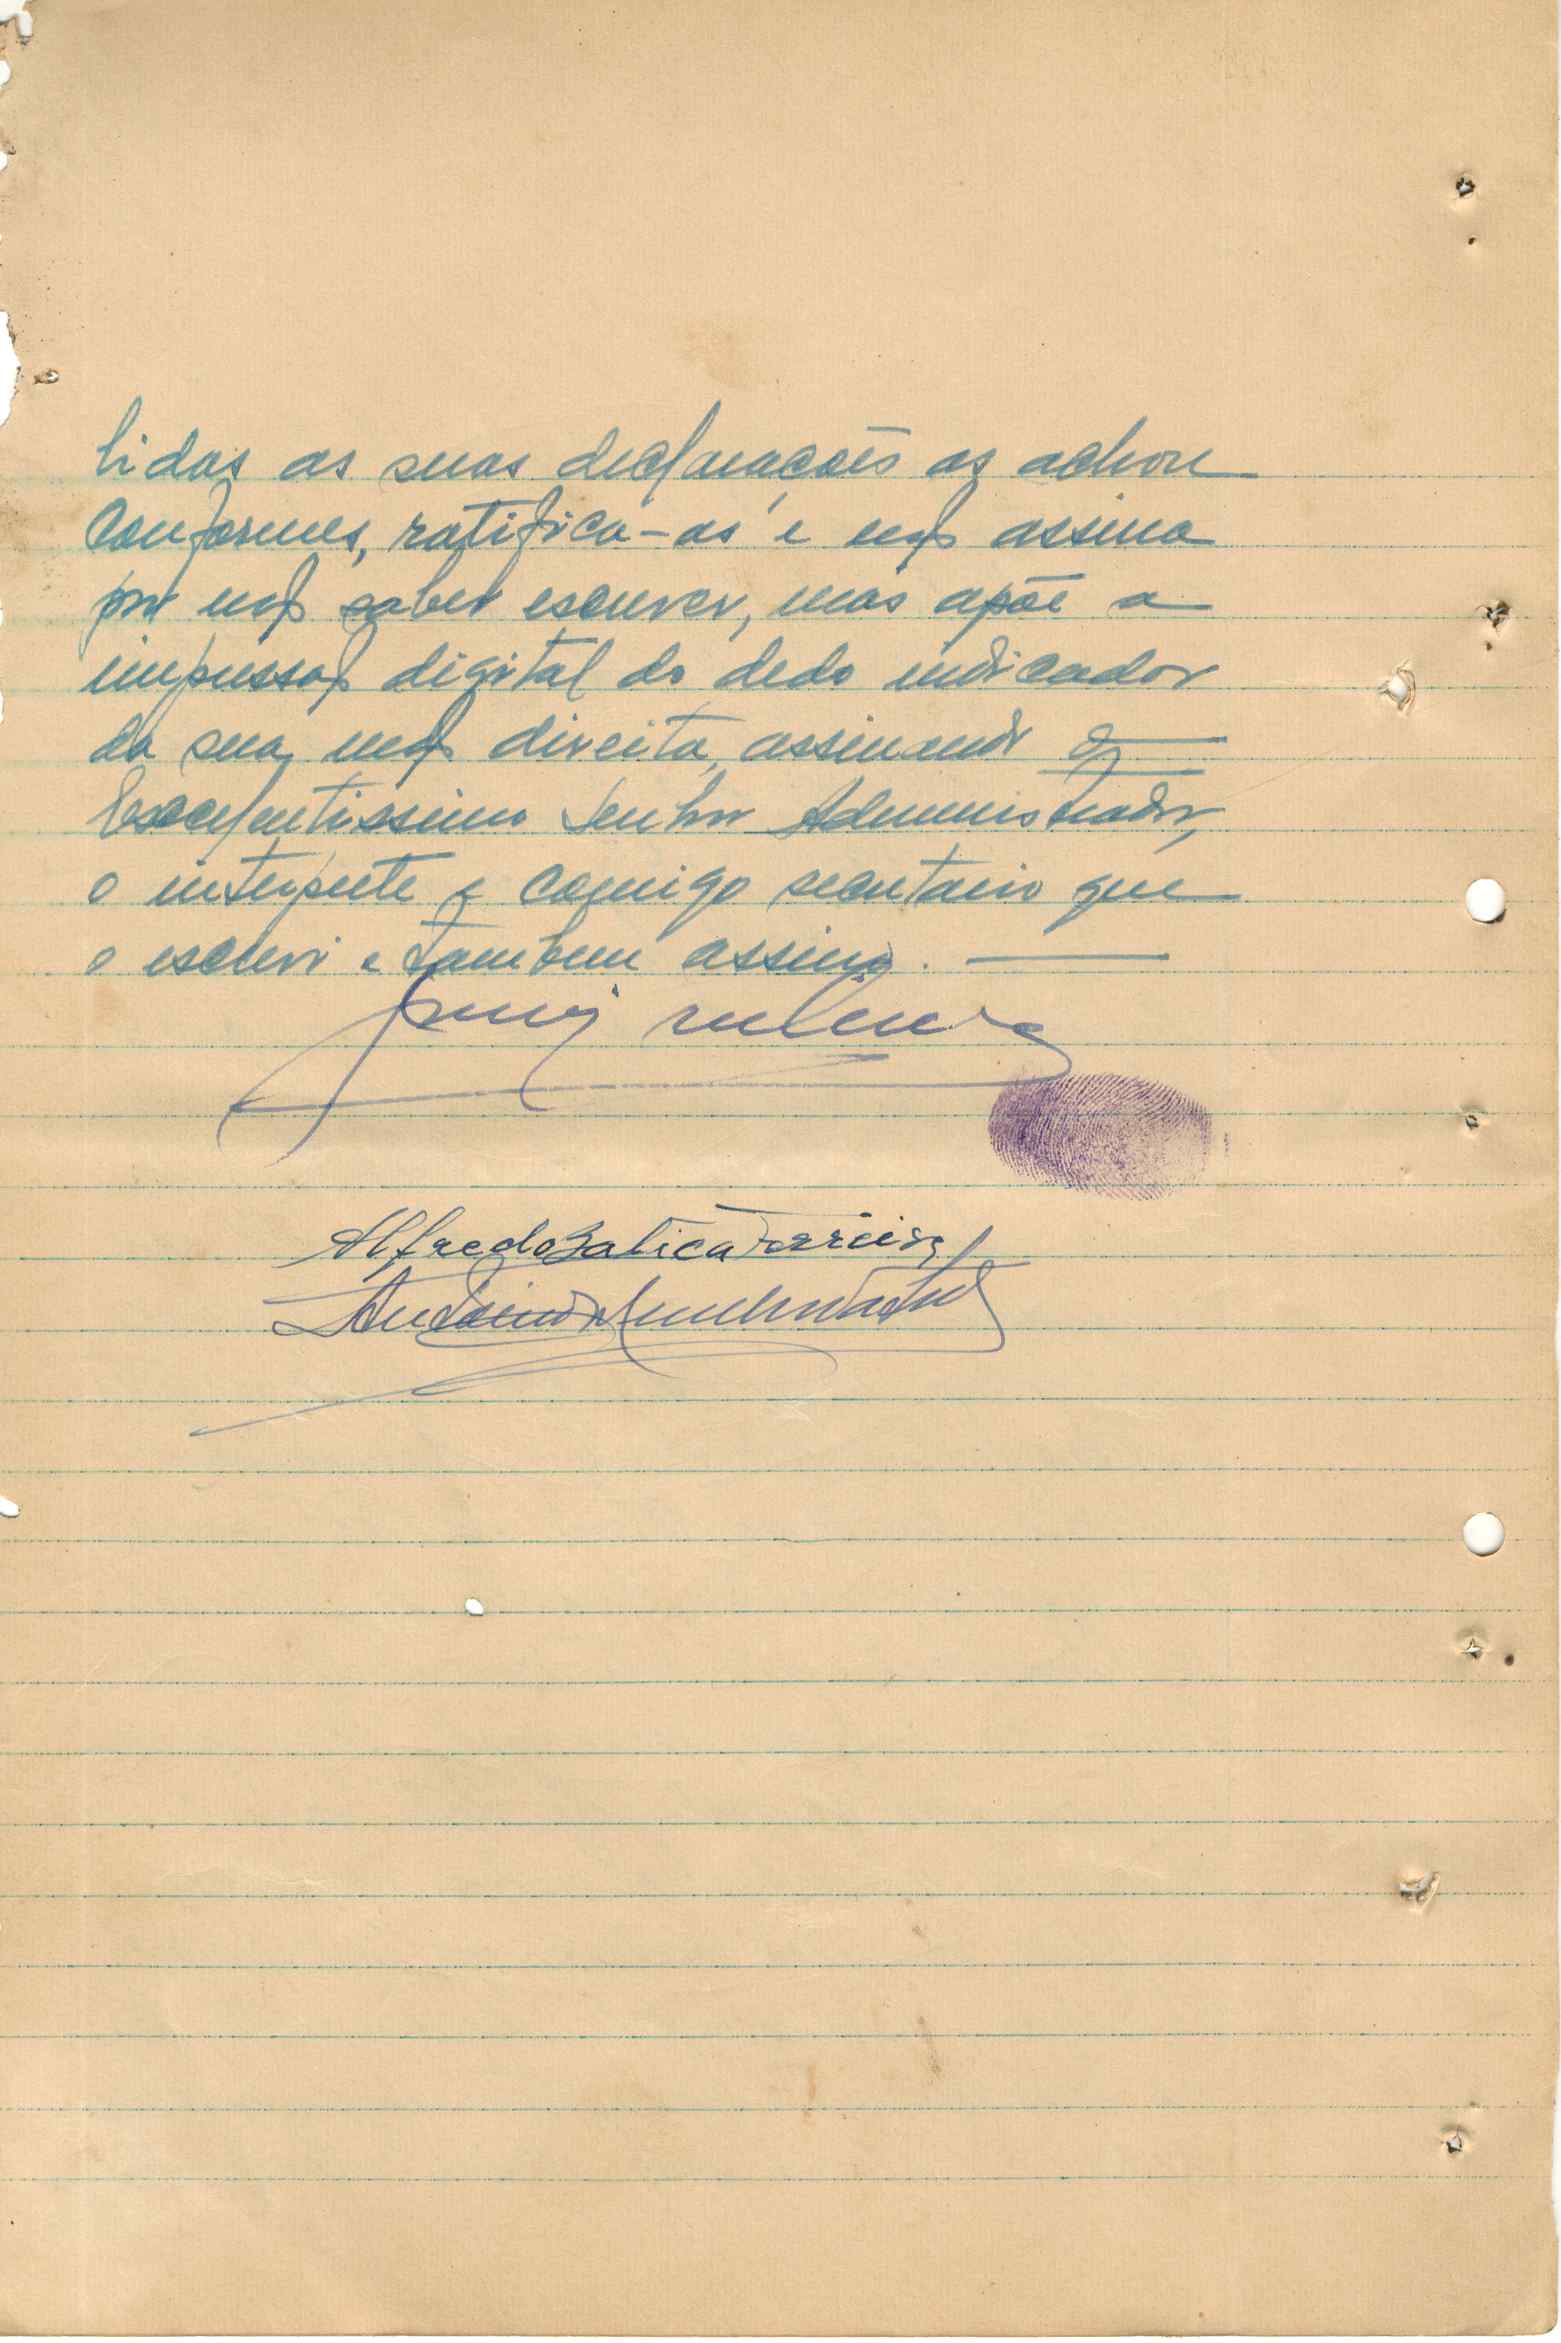 lidas as suas declarações as achou
conformes, ratifica-as e não assina
por não saber escrever, mas apõe a
impressão digital do dedo indicador
da sua mão direita, assinando o
Excelentissimo Senhor Administrador,
o interprete e comigo secretario que
o escrevi e tambem assino.
Alfredo Batica Ferreira
Antonio